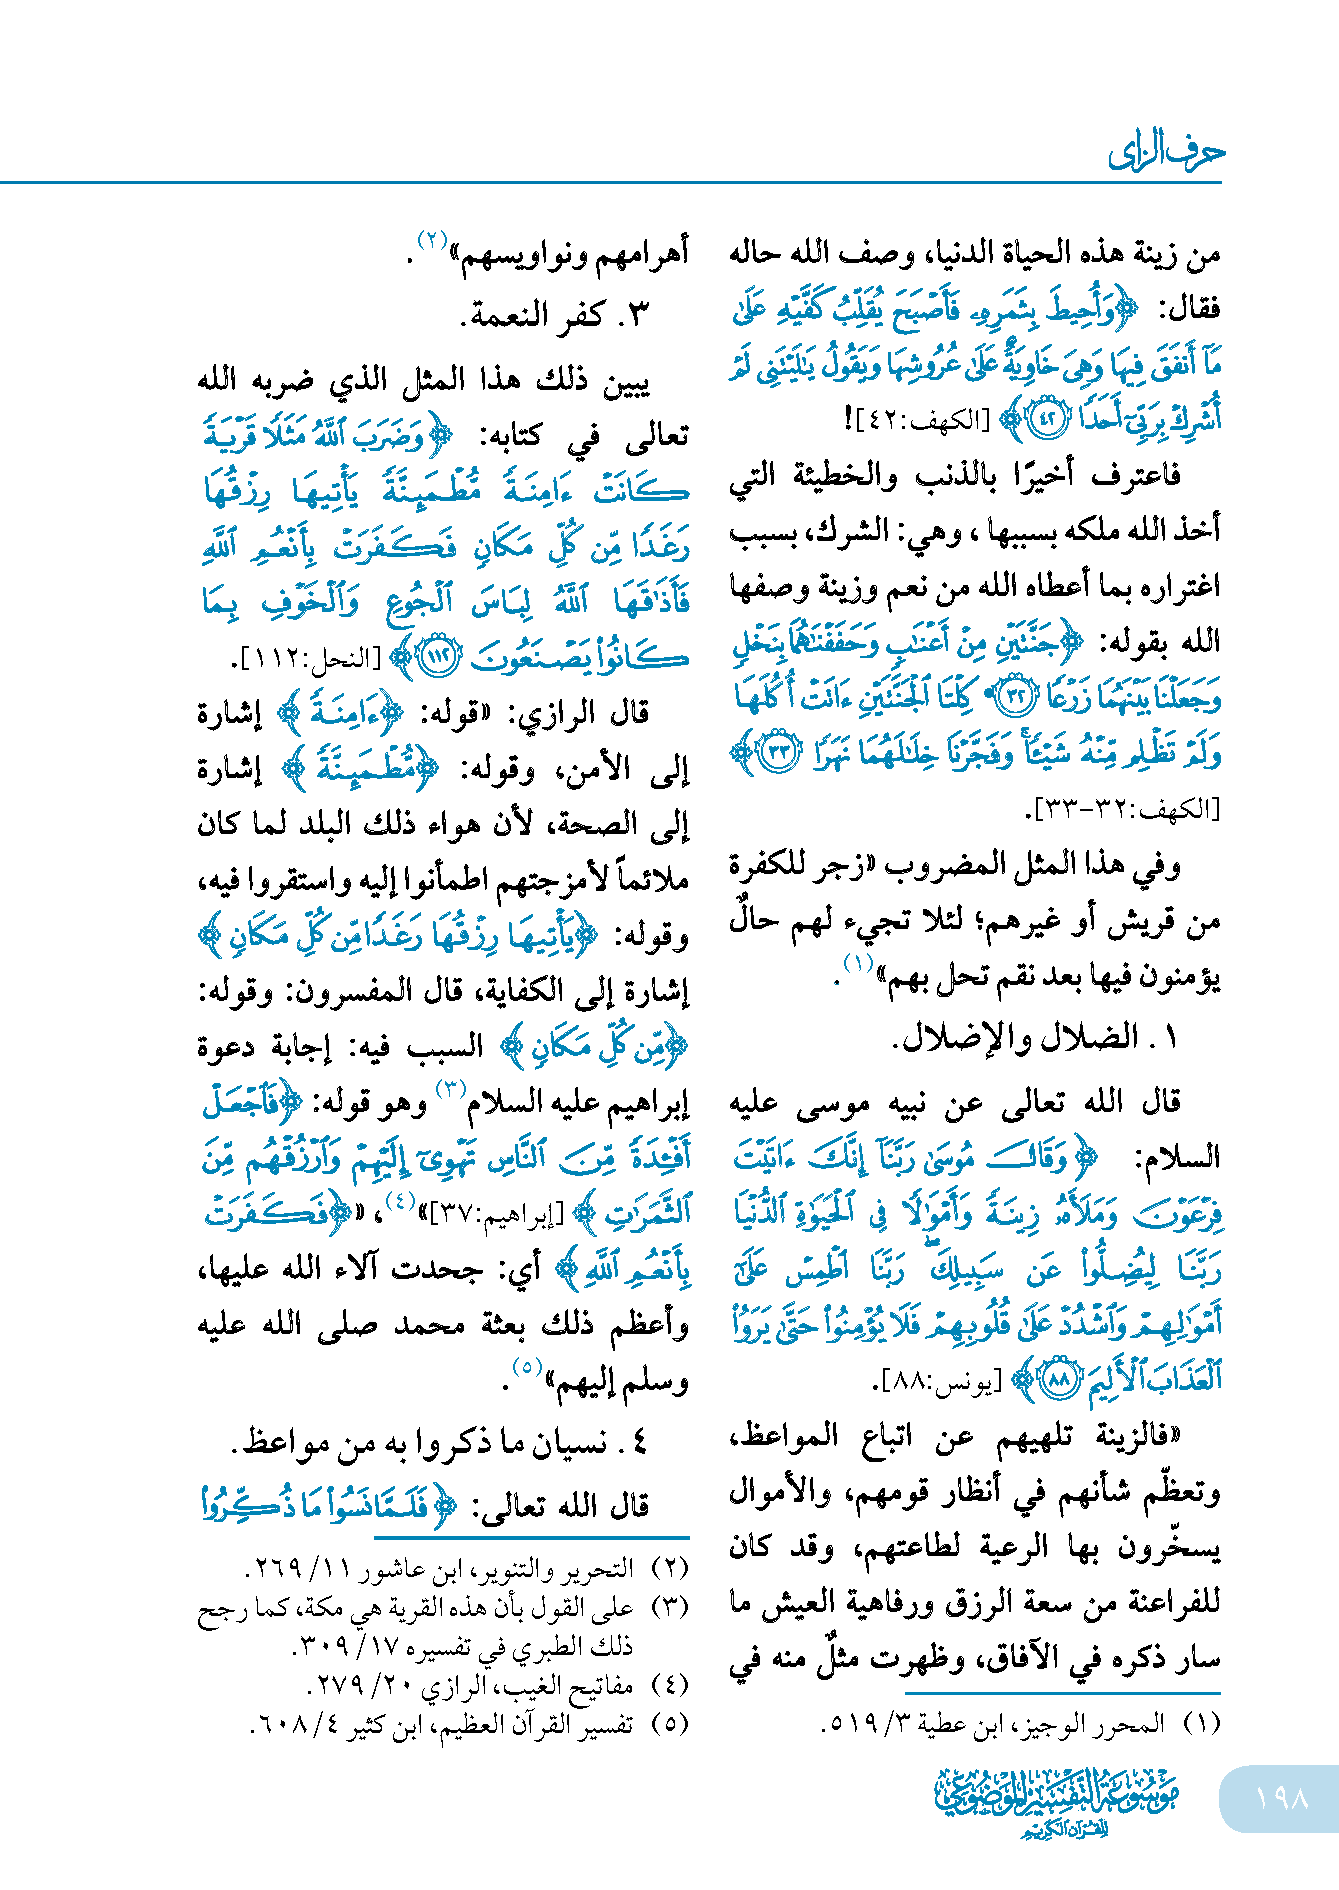 حرف الزاى
من زينة هذه الحياة الدنيا، وصف الله حاله
فقال: ﴿وَأُحِيطَ بِثَمَرِهِۦ فَأَصْبَحَ يُقَلِّبُ كَفَّيْهِ عَلَىٰ
مَآ أَنفَقَ فِيهَا وَهِىَ خَاوِيَةٌ عَلَىٰ عُرُوشِهَا وَيَقُولُ يَـٰلَيْتَنِى لَمْ
أُشْرِكْ بِرَبِّىٓ أَحَدًا ٤٢﴾ [الكهف:٤٢]!
فاعترف أخيرًا بالذنب والخطيئة التي
أخذ الله ملكه بسببها ، وهي: الشرك، بسبب
اغتراره بما أعطاه الله من نعم وزينة وصفها
الله بقوله: ﴿جَنَّتَيْنِ مِنْ أَعْنَـٰبٍ وَحَفَفْنَـٰهُمَا بِنَخْلٍ
وَجَعَلْنَا بَيْنَهُمَا زَرْعًا ٣٢ كِلْتَا ٱلْجَنَّتَيْنِ ءَاتَتْ أُكُلَهَا
وَلَمْ تَظْلِم مِّنْهُ شَيْـًٔا ۚ وَفَجَّرْنَا خِلَـٰلَهُمَا نَهَرًا ٣٣﴾
[الكهف:٣٢-٣٣].
وفي هذا المثل المضروب «زجر للكفرة
من قريش أو غيرهم؛ لئلا تجيء لهم حالٌ
يؤمنون فيها بعد نقم تحل بهم»(١).
١. الضلال والإضلال.
قال الله تعالى عن نبيه موسى عليه
السلام: ﴿وَقَالَ مُوسَىٰ رَبَّنَآ إِنَّكَ ءَاتَيْتَ
فِرْعَوْنَ وَمَلَأَهُۥ زِينَةً وَأَمْوَٰلًا فِى ٱلْحَيَوٰةِ ٱلدُّنْيَا
رَبَّنَا لِيُضِلُّوا۟ عَن سَبِيلِكَ ۖ رَبَّنَا ٱطْمِسْ عَلَىٰٓ
أَمْوَٰلِهِمْ وَٱشْدُدْ عَلَىٰ قُلُوبِهِمْ فَلَا يُؤْمِنُوا۟ حَتَّىٰ يَرَوُا۟
ٱلْعَذَابَ ٱلْأَلِيمَ ٨٨﴾ [يونس:٨٨].
«فالزينة تلهيهم عن اتباع المواعظ،
وتعظّم شأنهم في أنظار قومهم، والأموال
يسخّرون بها الرعية لطاعتهم، وقد كان
للفراعنة من سعة الرزق ورفاهية العيش ما
سار ذكره في الآفاق، وظهرت مثلٌ منه في
(١) المحرر الوجيز، ابن عطية ٣/ ٥١٩.
أهرامهم ونواويسهم»(٢).
٣. كفر النعمة.
يبين ذلك هذا المثل الذي ضربه الله
تعالى في كتابه: ﴿وَضَرَبَ ٱللَّهُ مَثَلًا قَرْيَةً
كَانَتْ ءَامِنَةً مُّطْمَئِنَّةً يَأْتِيهَا رِزْقُهَا
رَغَدًا مِّن كُلِّ مَكَانٍ فَكَفَرَتْ بِأَنْعُمِ ٱللَّهِ
فَأَذَٰقَهَا ٱللَّهُ لِبَاسَ ٱلْجُوعِ وَٱلْخَوْفِ بِمَا
كَانُوا۟ يَصْنَعُونَ ١١٢﴾ [النحل:١١٢].
قال الرازي: «قوله: ﴿ءَامِنَةً﴾ إشارة
إلى الأمن، وقوله: ﴿مُّطْمَئِنَّةً﴾ إشارة
إلى الصحة، لأن هواء ذلك البلد لما كان
ملائماً لأمزجتهم اطمأنوا إليه واستقروا فيه،
وقوله: ﴿يَأْتِيهَا رِزْقُهَا رَغَدًا مِّن كُلِّ مَكَانٍ﴾
إشارة إلى الكفاية، قال المفسرون: وقوله:
﴿مِّن كُلِّ مَكَانٍ﴾ السبب فيه: إجابة دعوة
إبراهيم عليه السلام(٣) وهو قوله: ﴿فَٱجْعَلْ
أَفْـِٔدَةً مِّنَ ٱلنَّاسِ تَهْوِىٓ إِلَيْهِمْ وَٱرْزُقْهُم مِّنَ
ٱلثَّمَرَٰتِ﴾ [إبراهيم:٣٧]»(٤)، «﴿فَكَفَرَتْ
بِأَنْعُمِ ٱللَّهِ﴾ أي: جحدت آلاء الله عليها،
وأعظم ذلك بعثة محمد صلى الله عليه
وسلم إليهم»(٥).
٤. نسيان ما ذكروا به من مواعظ.
قال الله تعالى: ﴿فَلَمَّا نَسُوا۟ مَا ذُكِّرُوا۟
(٢) التحرير والتنوير، ابن عاشور ١١/ ٢٦٩.
(٣) على القول بأن هذه القرية هي مكة، كما رجح
ذلك الطبري في تفسيره ١٧/ ٣٠٩.
(٤) مفاتيح الغيب، الرازي ٢٠/ ٢٧٩.
(٥) تفسير القرآن العظيم، ابن كثير ٤/ ٦٠٨.
موسوعة التفسير الموضوعي
للقرآن الكريم
١٩٨